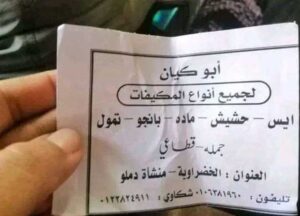 أبو كيان
لجميع أنواع المكيفات
ايس - حشيش - ماده - بانجو - تمول
جمله - قطاعي
العنوان : الخضراوية - منشأة دملو
تليفون : ٠١٠٦٣٨١٩٦٠ شكاوي : ٠١٣٢٨٢٤٩١١